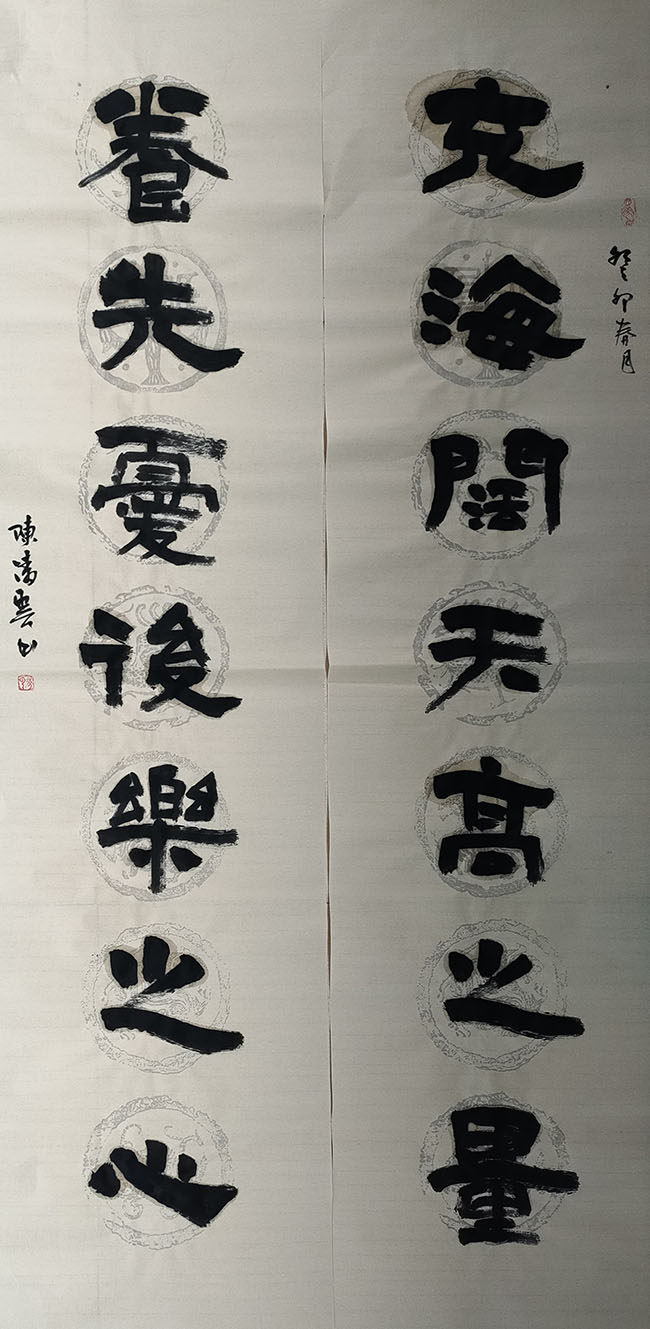 癸卯春月
充海闊天高之量
養先憂後樂之心